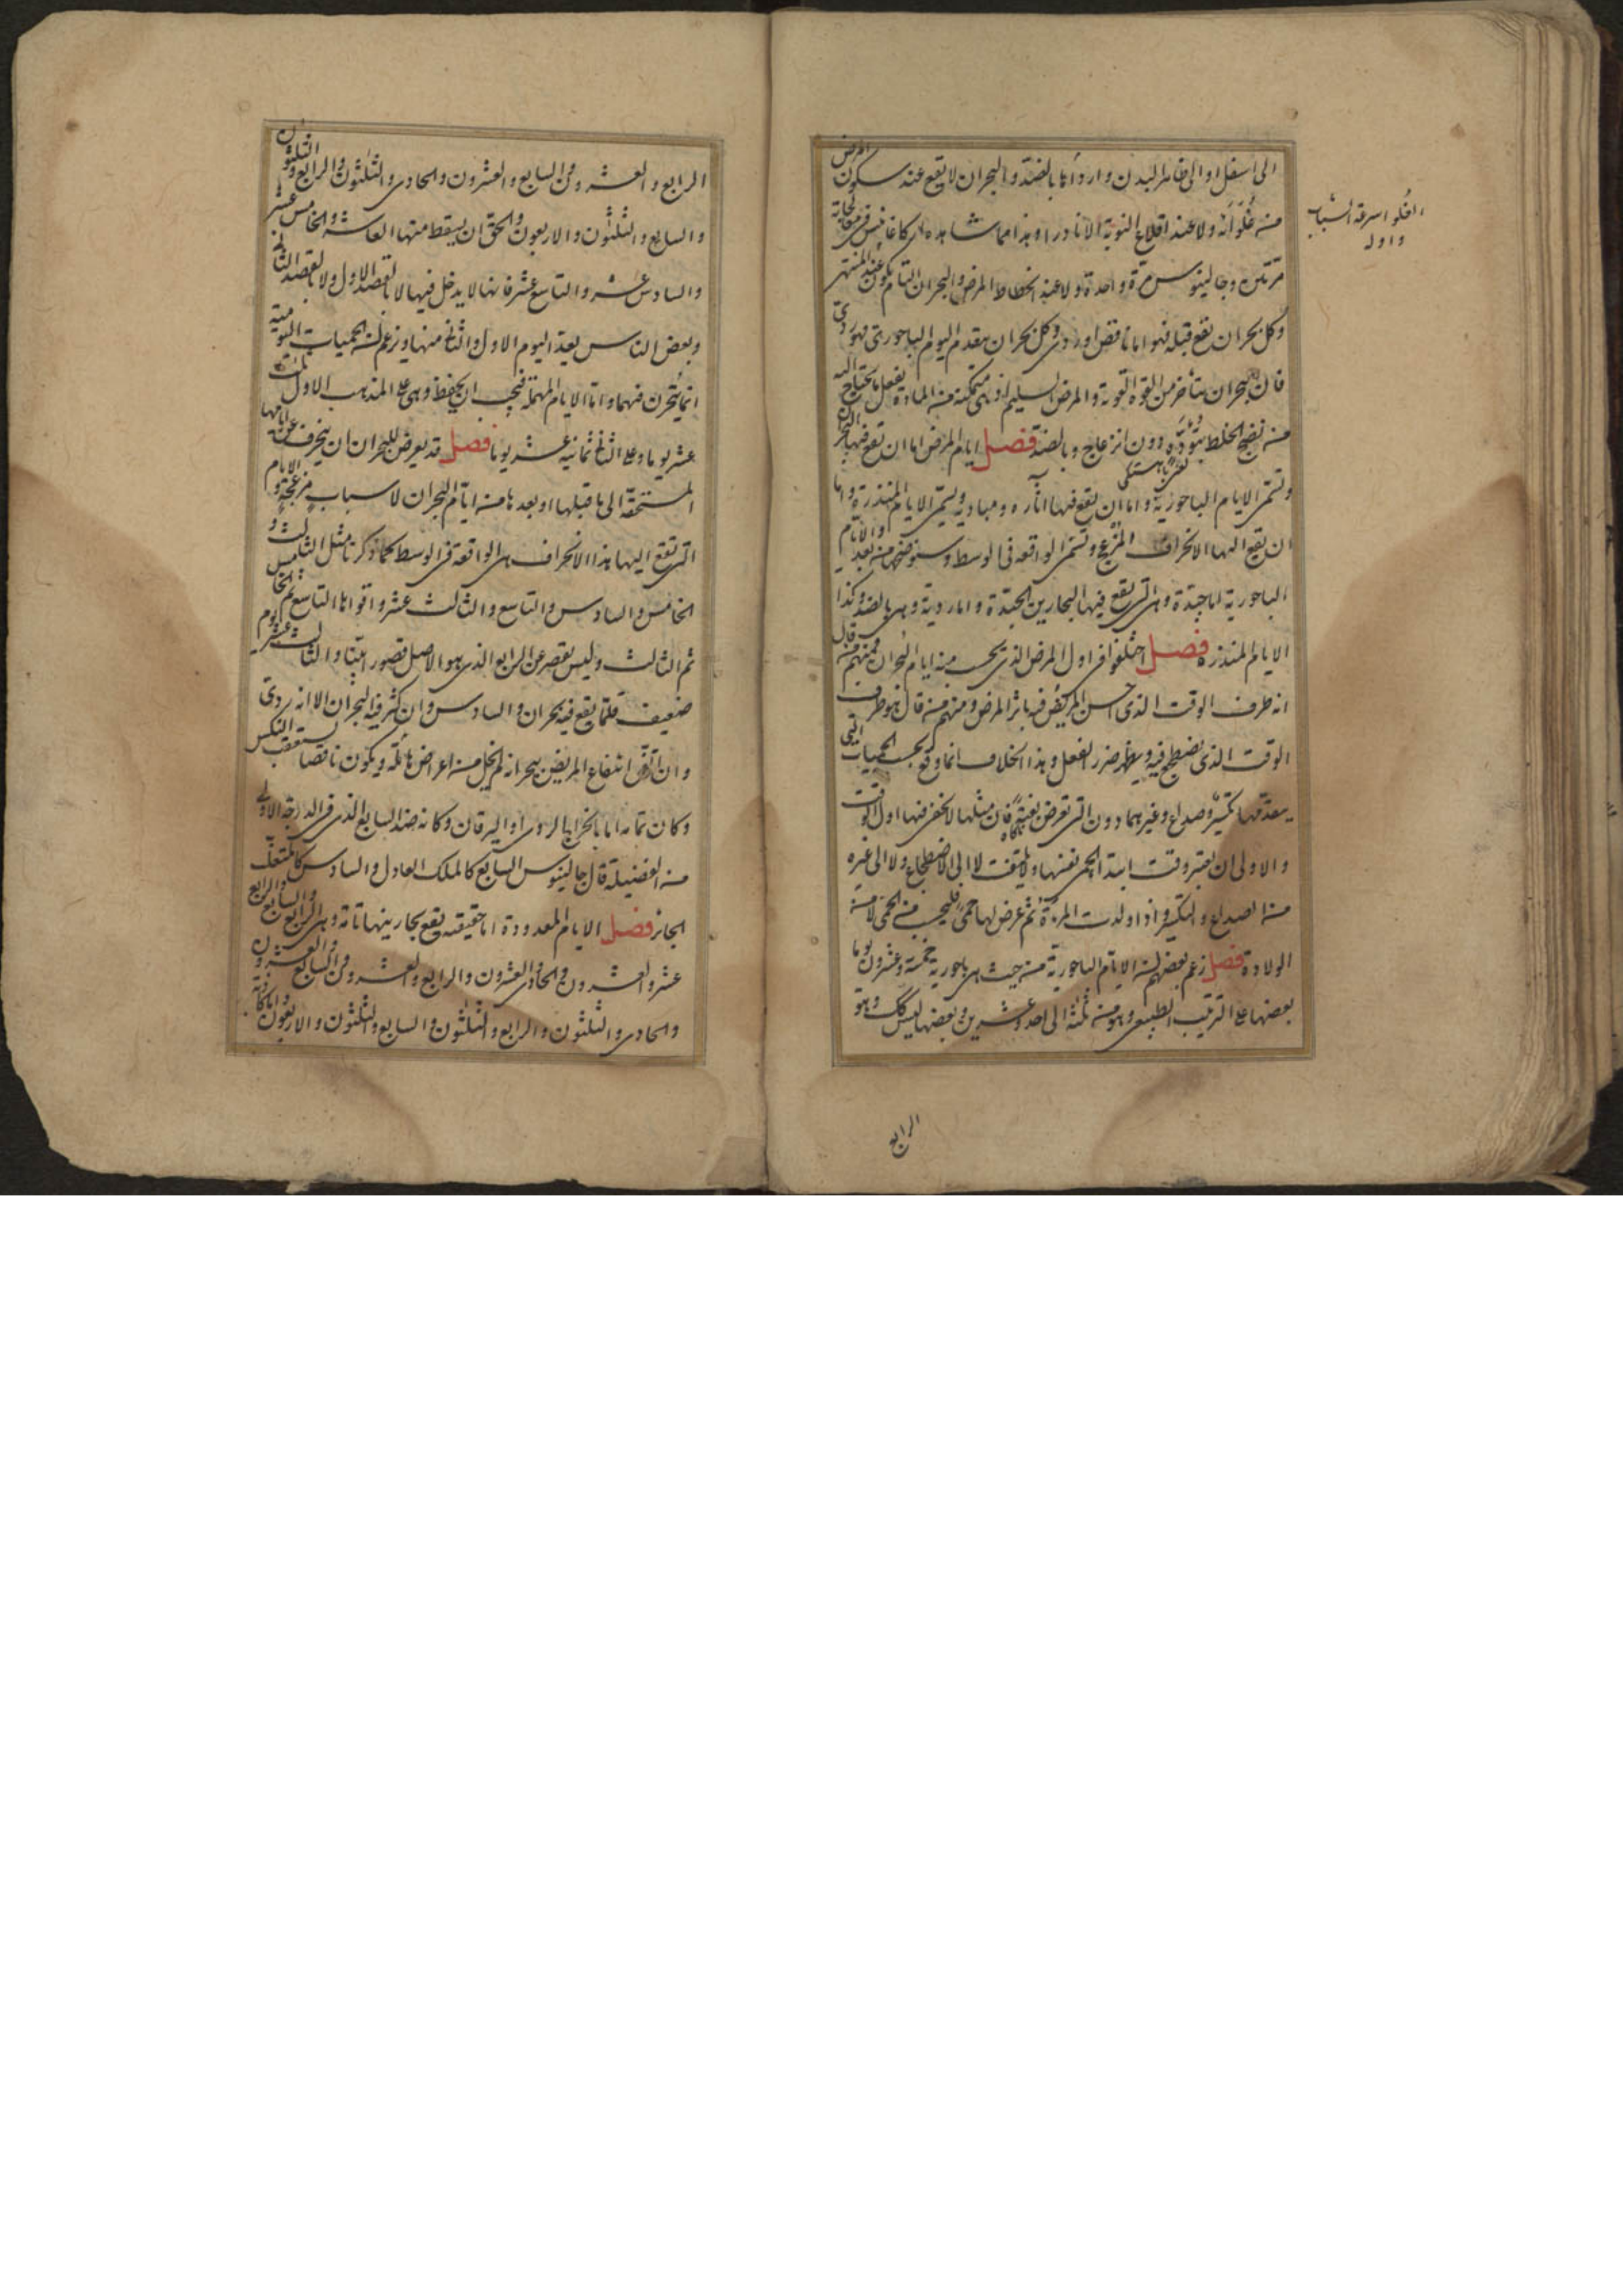 الى اسفل او الى ظاهر البدن واردأها بالضد والبحران لا يقع عند سكون المرض
من غلوائه ولا عند اقلاع النوبة الا نادرا وهذا مما شاهده اركاغانيس في معالجاته
مرتين وجالينوس مرة واحدة ولا عند انحطاط المرض والبحران التام يكون عند المنتهى
وكل بحران يقع قبله فهو اما ناقص او ردى وكل بحران يتقدم اليوم الباحورى فهو ردى
فان البحران يتأخر من القوة القوية والمرض السليم اذ هى متمكنة من المادة يفعل ما يحتاج اليه
من نضج الخلط بتؤدة دون انزعاج وبالضد فصل ايام المرض اما ان تقع فيها البحران
وتسمى الايام الباحورية واما ان يقع فيها آثاره ومباديه وتسمى الايام المنذرة واما
ان يقع اليها الانحراف المزعج وتسمى الواقعة فى الوسط وسنوضحها من بعد والايام
الباحورية اما جيدة وهى التى يقع فيها البحارين الجيدة واما ردية وهى بالضد وكذا
الايام المنذرة فصل اختلفوا فى اول المرض الذى يحسب منه ايام البحران فمنهم من قال
انه طرف الوقت الذى احس المريض فيه باثر المرض ومنهم من قال هو طرف
الوقت الذى يضطجع فيه ويظهر ضرر الفعل وهذا الخلاف انما وقع بحسب الحميات التى
يتقدمها تكسير وصداع وغيرهما دون التى تعرض بغتة فان مثلها لا يخفى فيها اول الوقت
والاولى ان يعتبر وقت ابتداء الحمى نفسها ولا يلتفت لا الى الاضطجاع ولا الى غيره
من الصداع والتكسير واذا ولدت المرأة ثم عرض لها حمى فليحسب من الحمى لا من
الولادة فصل زعم بعضهم ان الايام الباحورية من حيث هى باحورية خمسة وعشرون يوما
بعضها على الترتيب الطبيعى وهو من ثلثة الى احد وعشرين وبعضها ليس كك وهو
الغلو اسرعة الشباب
واوله
الرابع
الرابع والعشرون والسابع والعشرون والحادى والثلثون والرابع والثلثون
والسابع والثلثون والاربعون والحق ان يسقط منها العاشر والخامس عشر
والسادس عشر والتاسع عشر فانها لا يدخل فيها لا بالقصد الاول ولا بالقصد الثانى
وبعض الناس يعد اليوم الاول والثانى منها ويزعم ان الحميات اليومية
انما تبحرن فيهما واما الايام المهملة فيجب ان يحفظ وهى على المذهب الاول
عشر يوما وعلى الثانى ثمانية عشر يوما فصل قد يعرض للبحران ان ينحرف عن ايامها
المستحقة الى ما قبلها او بعدها من ايام البحران لاسباب مزعجة والايام
التى تقع اليها هذا الانحراف هى الواقعة فى الوسط كما ذكرنا مثل الثالث و
الخامس والسادس والتاسع والثالث عشر واقواها التاسع ثم الخامس
ثم الثالث وليس يقصر عن الرابع الذى هو الاصل قصورا بيّنا والثالث عشر يوم
ضعيف قلما يقع فيه بحران والسادس وان كثر فيه البحران الا انه ردى
وان اتفق انتفاع المريض ببحرانه لم يخل من اعراض هائلة ويكون ناقصا يستعقب النكس
وكان تمامه اما بالخراجا الردى او اليرقان وكانه ضد السابع الذى فى الدرجة الاولى
من الفضيلة قال جالينوس السابع كالملك العادل والسادس كالمتغلب
الجائر فصل الايام المعدودة اما حقيقته يقع بحارينها تامة وهى الرابع والسابع والرابع
عشر والعشرون والحادى والعشرون والرابع والعشرون والسابع والعشرون
والحادى والثلثون والرابع والثلثون والسابع والثلثون والاربعون واما كاذبة